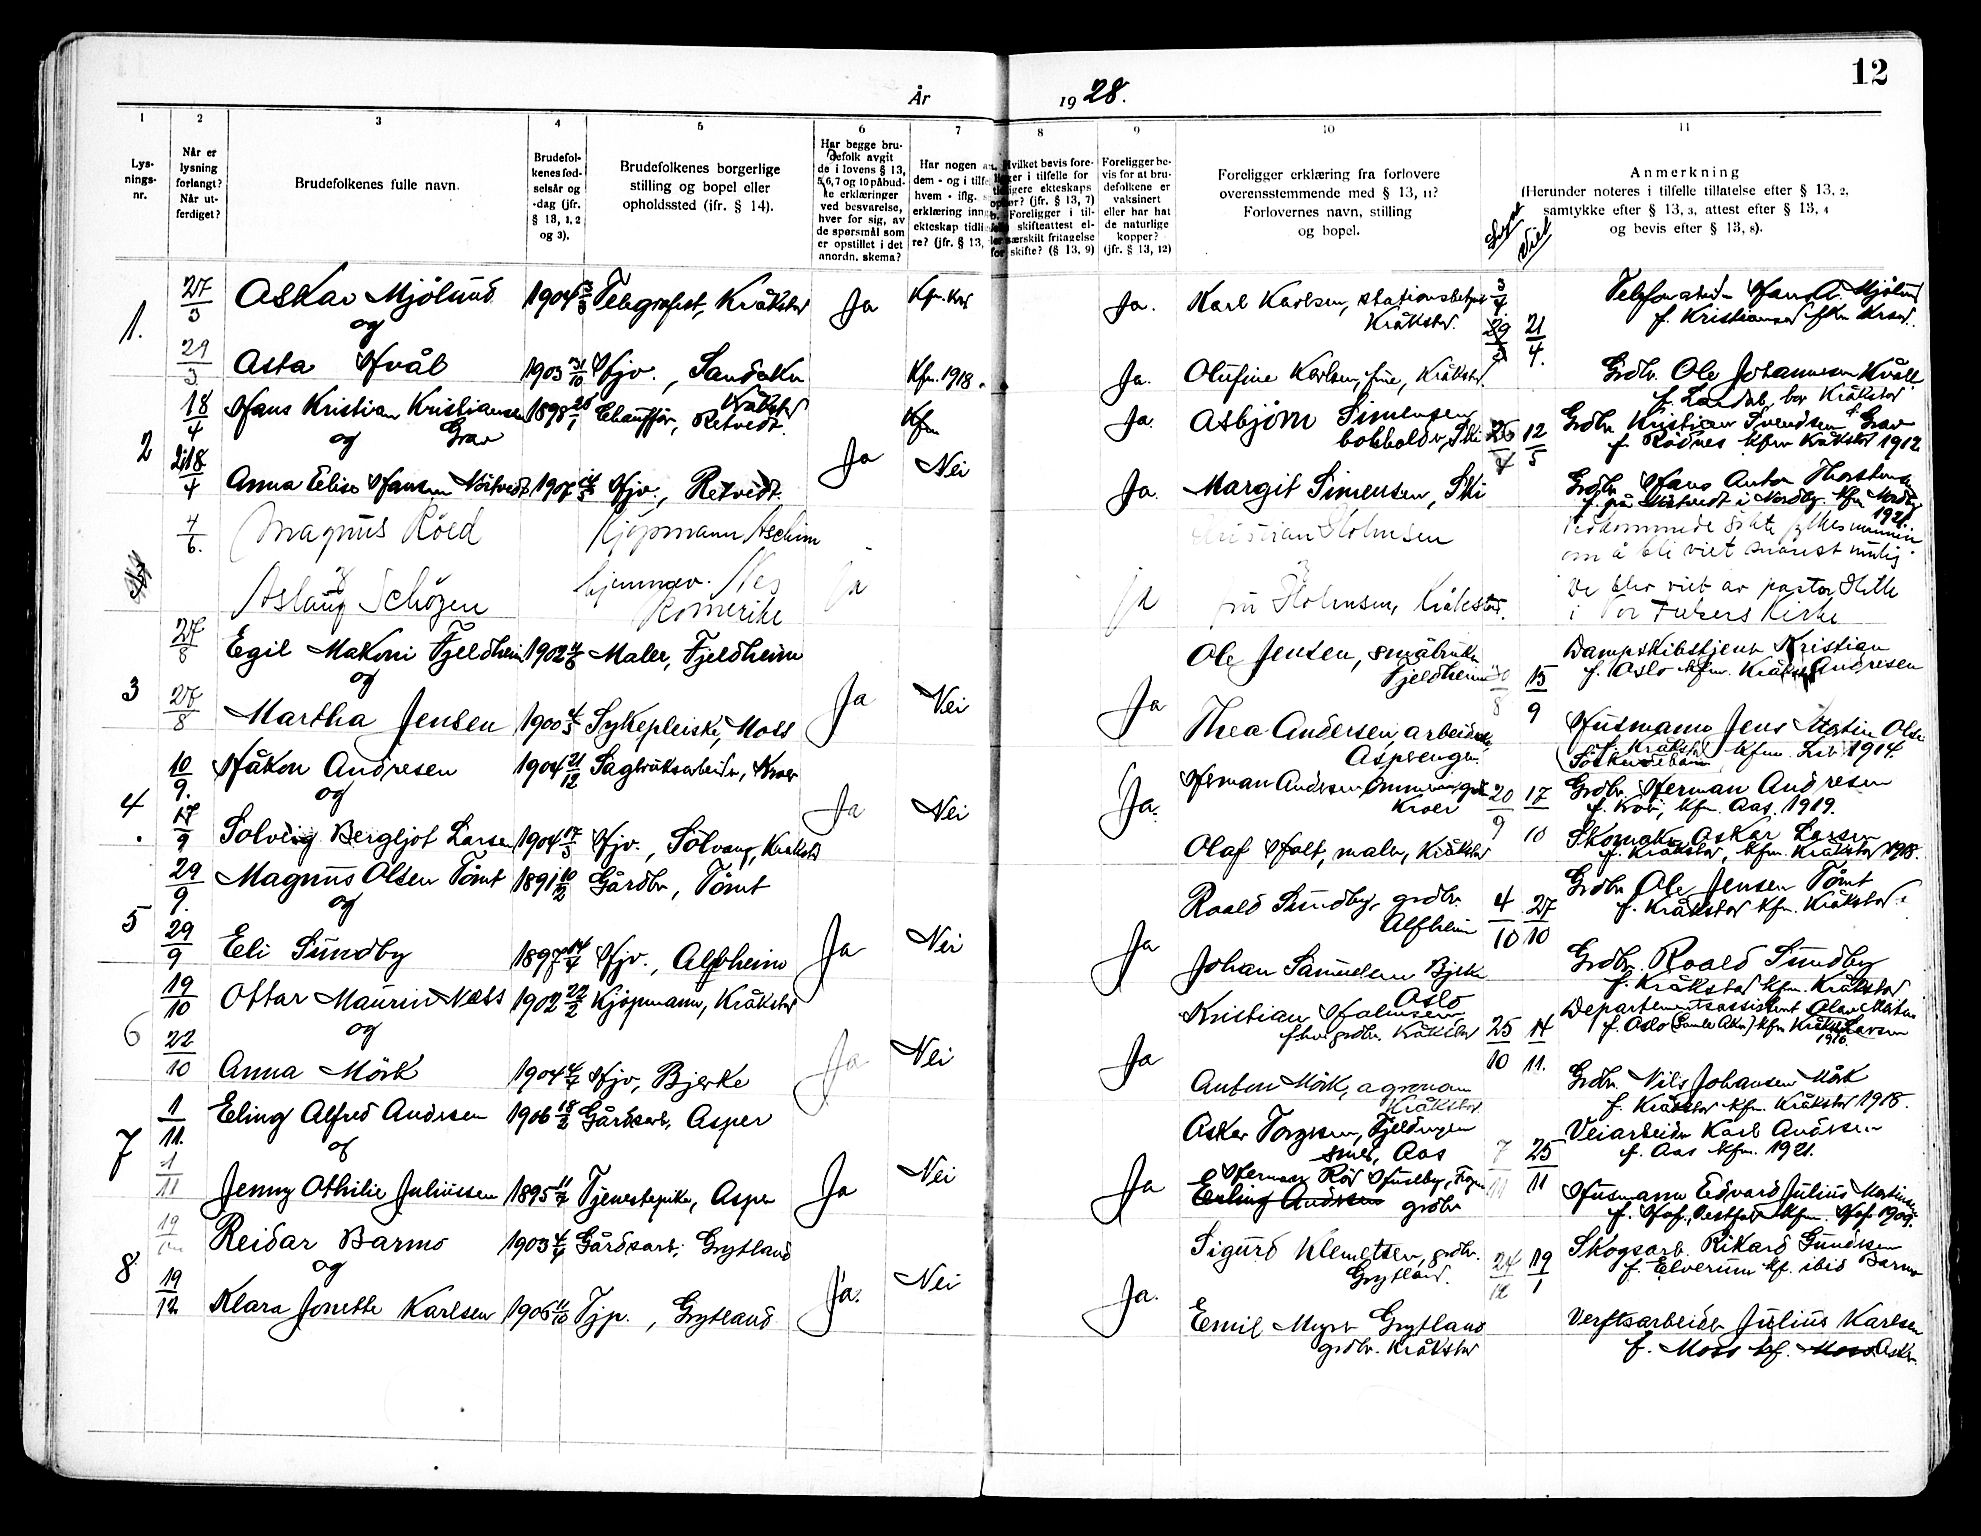 12
År 1928.
1
2
3
4
5
6
7
8
9
10
11
Lys-
nings-
nr.
Når er
lysning
forlangt?
Når ut-
ferdiget?
Brudefolkenes fulle navn.
Brudefol-
kenes fød-
selsår og
-dag (jfr.
§ 13, 1, 2
og 3).
Brudefolkenes borgerlige
stilling og bopel eller
opholdssted (ifr. § 14).
Har begge bru-
defolk avgit
de i lovens § 13,
5, 6, 7 og 10 påbud-
te erklæringer
ved besvarelse,
hver for sig, av
de spørsmål som
er opstillet i det
anordn. skema?
Har nogen av
dem - og i tilf
hvem - iflg.
erklæring inng
ekteskap tidli
re? (jfr. § 13,
Hvilket bevis fore-
ligger i tilfelle for
tidligere ekteskaps
ophør? (jfr. § 13, 7)
Foreligger i til-
skifteattest el-
særskilt fritagelse
for skifte? (§ 13, 9)
Foreligger be-
vis for at bru-
defolkene er
vaksinert
eller har hat
de naturlige
kopper?
(jfr. § 13, 12)
Foreligger erklæring fra forlovere
overensstemmende med § 13, 11?
Forlovernes navn, stilling
og bopel.
Lyst
Viet
Anmerkning
(Herunder noteres i tilfelle tillatelse efter § 13, 2,
samtykke efter § 13, 3, attest efter § 13, 4
og bevis efter § 13, 8).
1. 27/3 Askar Mjölund 1904 Telegrafist, Kråkstad Ja Ja. Karl Karlsen, stationsbetjent
og Kråkstad. 21/4.
29/3 Asta Hvål 1903 31/10 Hjv., Kfm. 1918. Ja. Olufine Karlsen, frue, Kråkstad.
Grdbr. Ole Johannesen Kvål
bor Kråkstad
2 18/4 Hans Kristian Kristiansen 1898 Chauffør, Retvedt. Kfm Ja. Asbjørn Simensen 12/5 Grdbr. Kristian Svendsen Grav
og Grav bokholder, Ski f. Rødnes kfm Kråkstad 1912
18/4 Anna Elise Hansen Nötvedt 1907 Hjv., Retvedt. Ja Nei Ja. Margit Simensen, Ski Grdbr. Hans Anton
1921.
4/6. Magnus Röed Kjøpmann Askim Kristian Holmsen
om å bli viet snarest mulig.
Aslaug Schözen hjemmev. Nes ja ja fru Holmsen, Kråkstad. De blev viet av pastor Hille
Romerike i Vor Frelsers Kirke
3 27/8 Egil Makoni Fjeldheim 1902 Maler, Fjeldheim Ole Jensen, småbruker Dampskibstjener Kristian
og Fjeldheim 15/9 f. Oslo kfm. Kråkstad Andresen
27/8 Martha Jensen 1900 Sykepleiske, Moss Ja Nei Ja Thea Andersen, arbeiderske Husmann Jens Martin Olsen
Aspengen. f. Kråkstad kfm. 1914.
4. 10/9. Håkon Andresen 1904 21/12 Sagbruksarbeider, Kroer Ja Nei Ja. Herman Andersen 20/9 17/10 Grdbr. Herman Andresen
og Kroer kfm. Aas. 1919.
17/9 Solveig Bergljot Larsen 1904 17/3 Hjv., Solvang, Kråkstad Olaf Holt, maler, Kråkstad Skomaker Askar Larsen
f. Kråkstad, kfm. Kråkstad 1918.
5 29/9. Magnus Olsen Tömt 1891 10/12 Gårdbr, Tömt Roald Sundby, grdbr. 4/10 27/10 Grdbr. Ole Jensen Tömt
og Alfheim f. Kråkstad kfm. Kråkstad.
29/9 Eli Sundby 1897 14/4 Hjv., Alfheim Ja Nei Ja Johan Samuelsen Bjerke Grdbr. Roald Sundby
Oslo f. Kråkstad kfm. Kråkstad
6 19/10 Ottar Maurin Næss 1902 22/2 Kjöpmann, Kråkstad Kristian Holmsen Departementsassistent
og fhv. grdbr. Kråkstad 25/10 14/11. f. Oslo (Gamle Aker) kfm Kråkstad Larsen
22/10 Anna Mörk 1904 4/7 Hjv, Bjerke Ja Nei Ja Anton Mörk, agronom Grdbr. Nils Johansen Mörk
Kråkstad f. Kråkstad kfm. Kråkstad 1918.
7 1/11. Erling Alfred Andersen 1906 18/2 Gårdsarb, Asper Askar Torgersen, 7/11 25/11 Veiarbeider Karl Andersen
og Aas f. Aas kfm. 1921.
1/11 Jenny Othilie Juliussen 1895 Tjenestepike, Asper Ja Nei Ja Husmann Edvard Julius Martinsen
Erling Andersen grdbr f. Hof, Vestfold kfm. Hof 1909.
8 19/12 Reidar Barmo 1903 Gårdsarb. Grytland Sigurd Klemetsen, grdbr. 24/12 19/1 Skogsarb. Rikard Gundersen
og Grytland. f. Elverum kf. ibid Barmo
19/12 Klara Jonette Karlsen 1906 11/10 Tjp., Grytland Ja. Nei Ja. Emil Myrer Grytland Verftsarbeider Julius Karlsen
grdbr. Kråkstad f. Moss kf. Moss